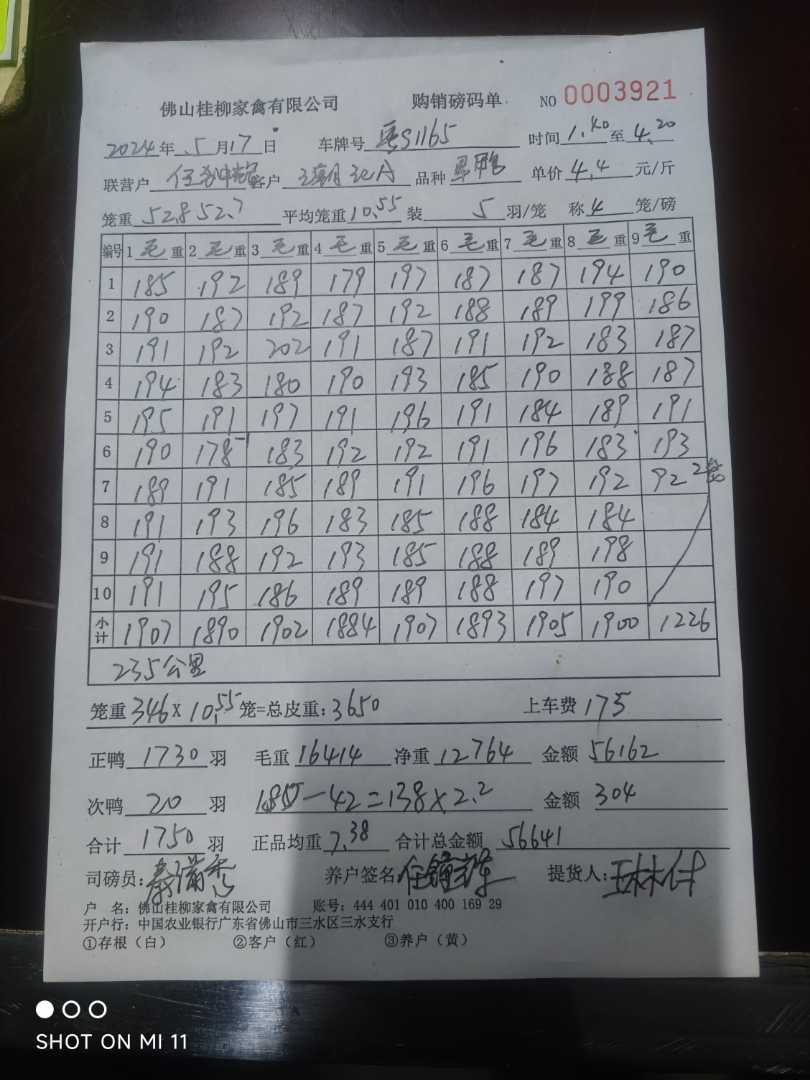 佛山桂柳家禽有限公司 购销磅码单 NO 0003921
2024年 5月17日 车牌号 S1165 时间1.40至4.20
联营户 客户 品种 单价4.4元/斤
笼重 52.8 52.7 平均笼重10.55装 5 羽/笼 称4 笼/磅
编号 1毛重 2毛重 3毛重 4毛重 5毛重 6毛重 7毛重 8毛重 9毛重
1 185 192 189 179 197 187 187 194 190
2 190 187 192 187 192 188 189 199 186
3 191 192 202 191 187 191 192 183 187
4 194 183 180 190 193 185 190 188 187
5 195 191 197 191 196 191 184 189 191
6 190 178 183 192 192 191 196 183 193
7 189 191 185 189 191 196 197 192 92 2笼
8 191 193 196 183 185 188 184 184
9 191 188 192 193 185 188 189 198
10 191 195 186 189 189 188 197 190
小计 1907 1890 1902 1884 1907 1893 1905 1900 1226
235公里
笼重346×10.55笼=总皮重:3650 上车费175
正鸭1730羽 毛重16414 净重12764 金额56162
次鸭20羽 180-42=138×2.2 金额304
合计1750羽 正品均重7.38 合计总金额56641
司磅员: 养户签名: 提货人:
户 名:佛山桂柳家禽有限公司 账号:444 401 010 400 169 29
开户行:中国农业银行广东省佛山市三水区三水支行
①存根(白) ②客户(红) ③养户(黄)
SHOT ON MI 11